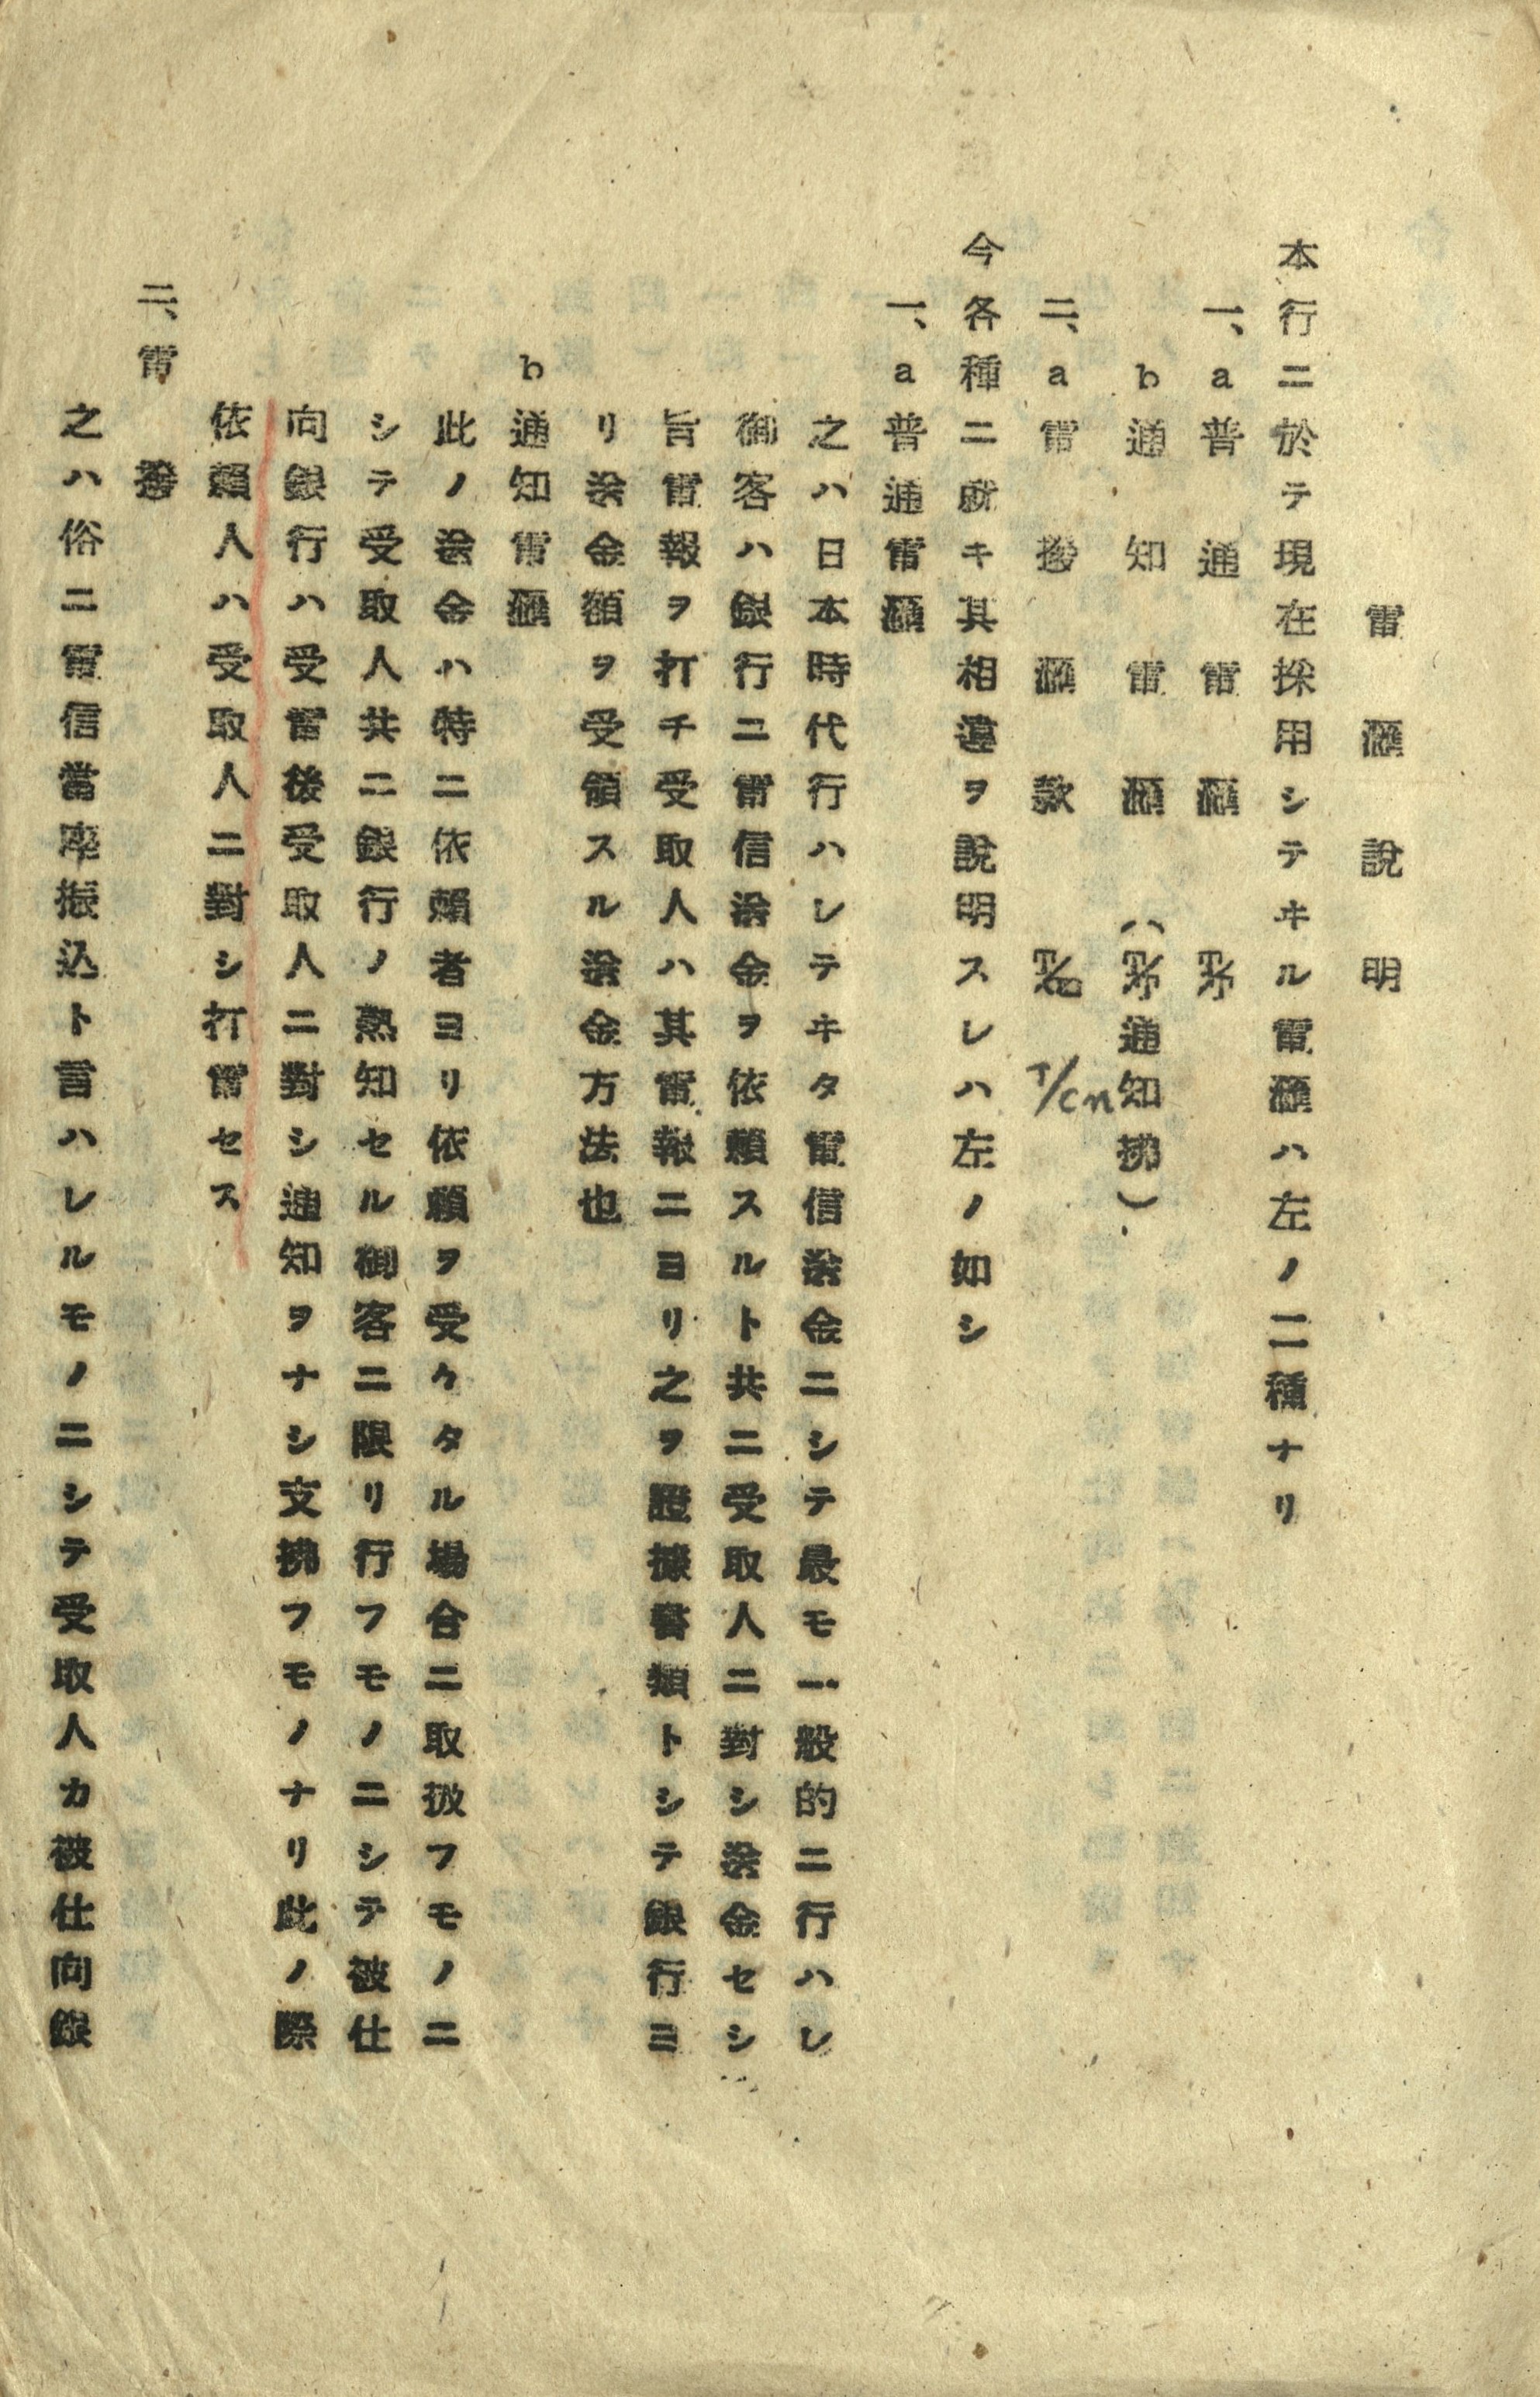 電滙說明
本行ニ於テ現在採用シテヰル電滙ハ左ノ二種ナリ
一、a普通電滙
b通知電滙（通知拂）
二、a電撥滙款 T/cn
今各種ニ就キ其相違ヲ說明スレハ左ノ如シ
一、a普通電滙
之ハ日本時代行ハレテヰタ電信送金ニシテ最モ一般的ニ行ハレ
御客ハ銀行ニ電信送金ヲ依賴スルト共ニ受取人ニ對シ送金セシ
旨電報ヲ打チ受取人ハ其電報ニヨリ之ヲ證據書類トシテ銀行ヨ
リ送金額ヲ受領スル送金方法也
b通知電滙
此ノ送金ハ特ニ依賴者ヨリ依賴ヲ受ケタル場合ニ取扱フモノニ
シテ受取人共ニ銀行ノ熟知セル御客ニ限リ行フモノニシテ被仕
向銀行ハ受電後受取人ニ對シ通知ヲナシ支拂フモノナリ此ノ際
依賴人ハ受取人ニ對シ打電セス
二、電撥
之ハ俗ニ電信當座振込ト言ハレルモノニシテ受取人カ被仕向銀